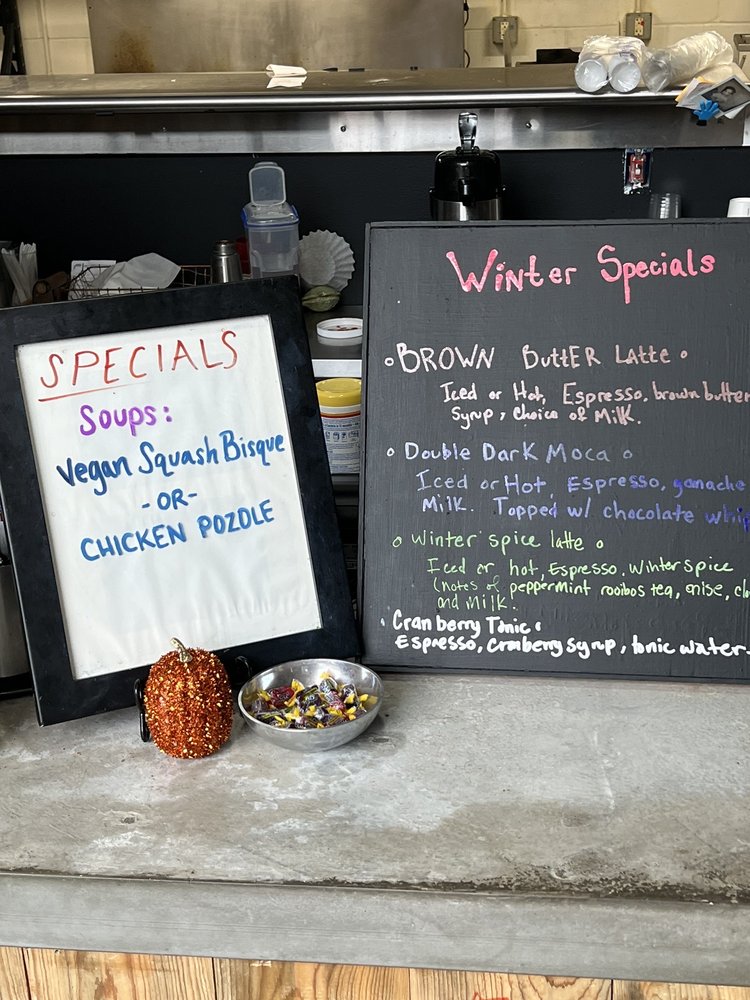 SPECIALS
Soups:
Vegan Squash Bisque
-OR-
CHICKEN POZOLE
Winter Specials
BROWN ButtER Latte
Iced or Hot, Espresso, brown butter
Syrup, Choice of Milk.
Double Dark Moca
Iced or Hot, Espresso, ganache
Milk. Topped w/ chocolate whip
Winter spice latte
Iced or hot, Espresso, Winter spice
(notes of peppermint rooibos tea, anise, clo
and milk.
Cranberry Tonic
Espresso, cranberry syrup, tonic water